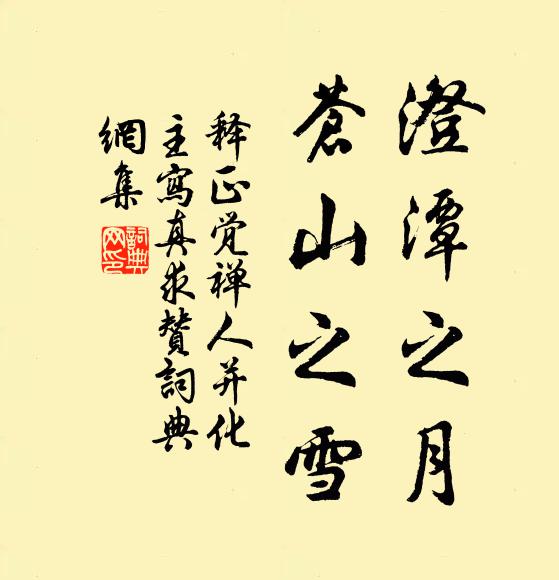 澄潭之月
蒼山之雪
释正觉禅人并化
主寫真求赞詞典
網集
詞典
网印